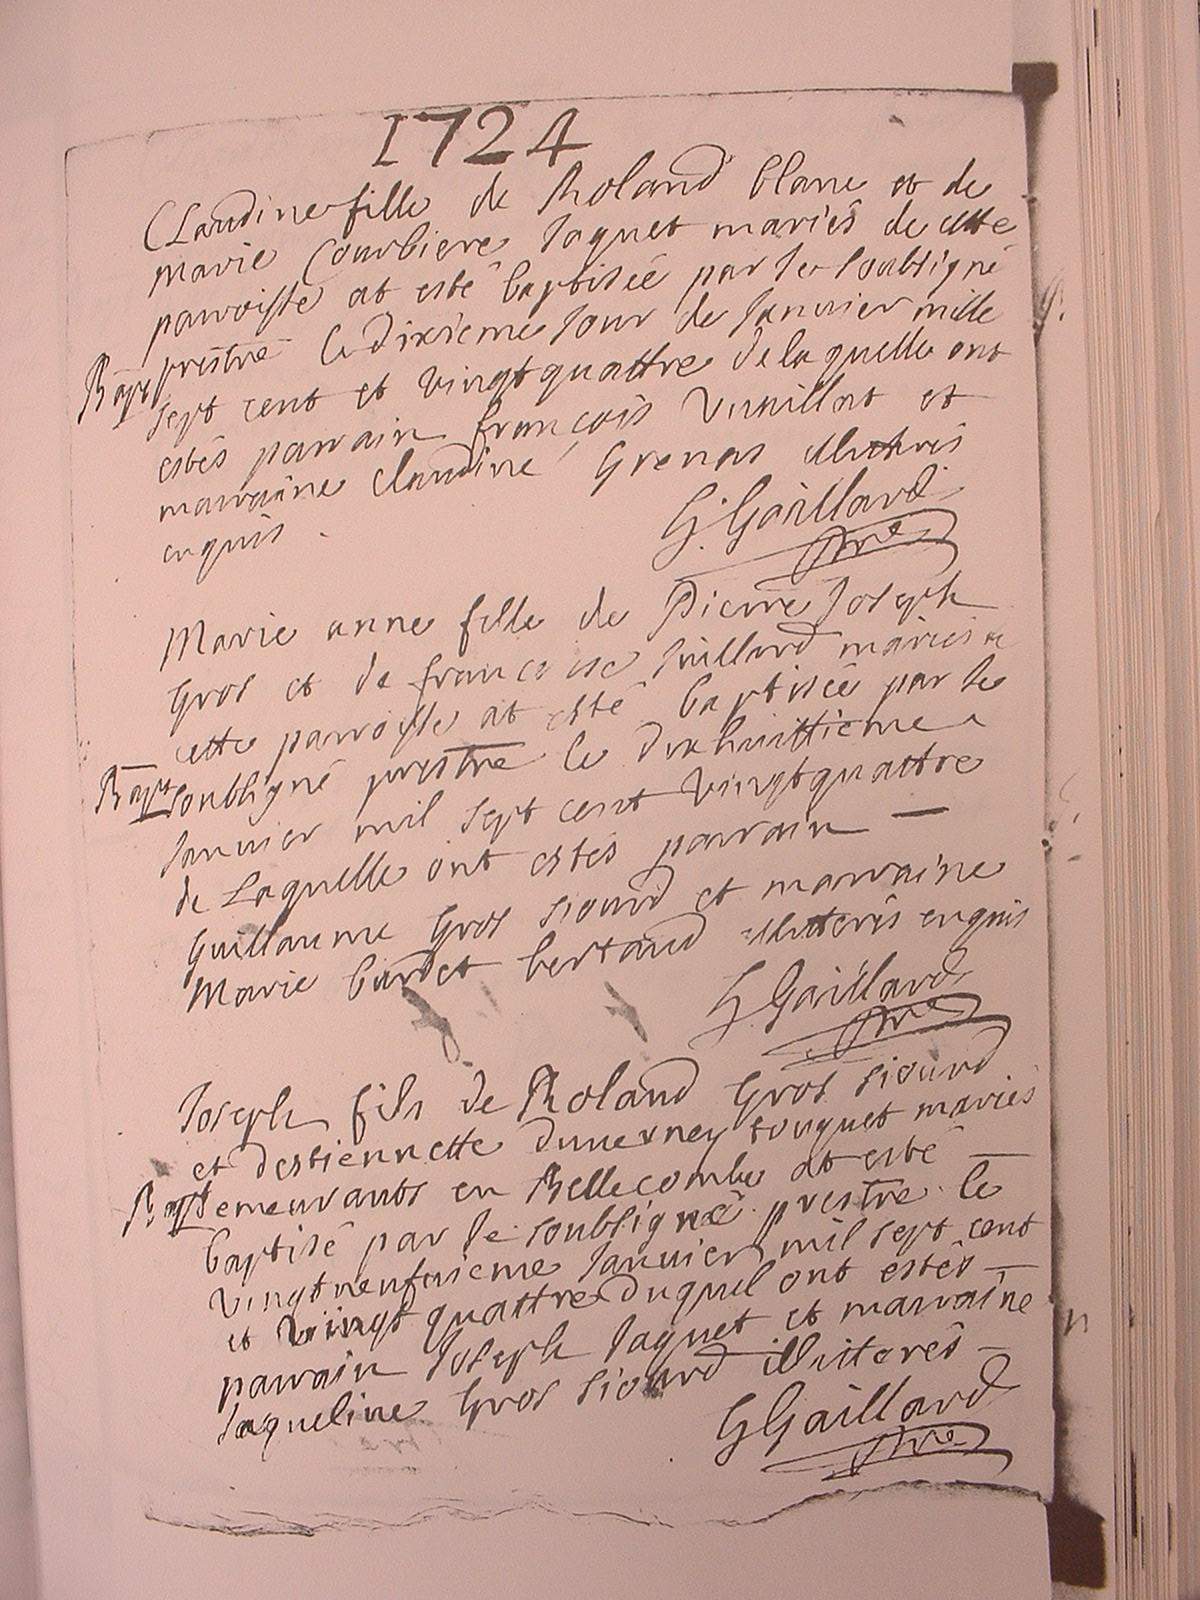 1724
Claudine fille de Roland blanc et de
marie Courbiere Jaquet mariés de cette
parroisse at esté baptisée par le soubsigné
Bapt prestre le dixieme Jour de Janvier mille
sept cent et vingt quattre de la quelle ont
estés parrain françois Vuaillat et
marraine claudine Grenas illiterés
enquis.
G. Gaillard
ptre
Marie anne fille de Pierre Joseph
Gros et de francoise Juillard mariés de
cette parroisse at esté baptisée par le
Bapt soubsigné prestre le dixhuittieme
Janvier mil sept cent vingt quattre
de Laquelle ont estés parrain —
Guillaume Gros Siourd et marraine
Marie burdet bertand illiterés enquis
G. Gaillard
ptre
Joseph fils de Roland Gros Siourd
et destiennette duverney touquet mariés
Bapt demeurants en Bellecombe at esté —
baptisé par le soubsigné prestre le
vingtneufvieme Janvier mil sept cent
et vingt quattre duquel ont estés —
parrain Joseph Jaquet et marraine
Jaqueline Gros Siourd illitterés —
G Gaillard
ptre